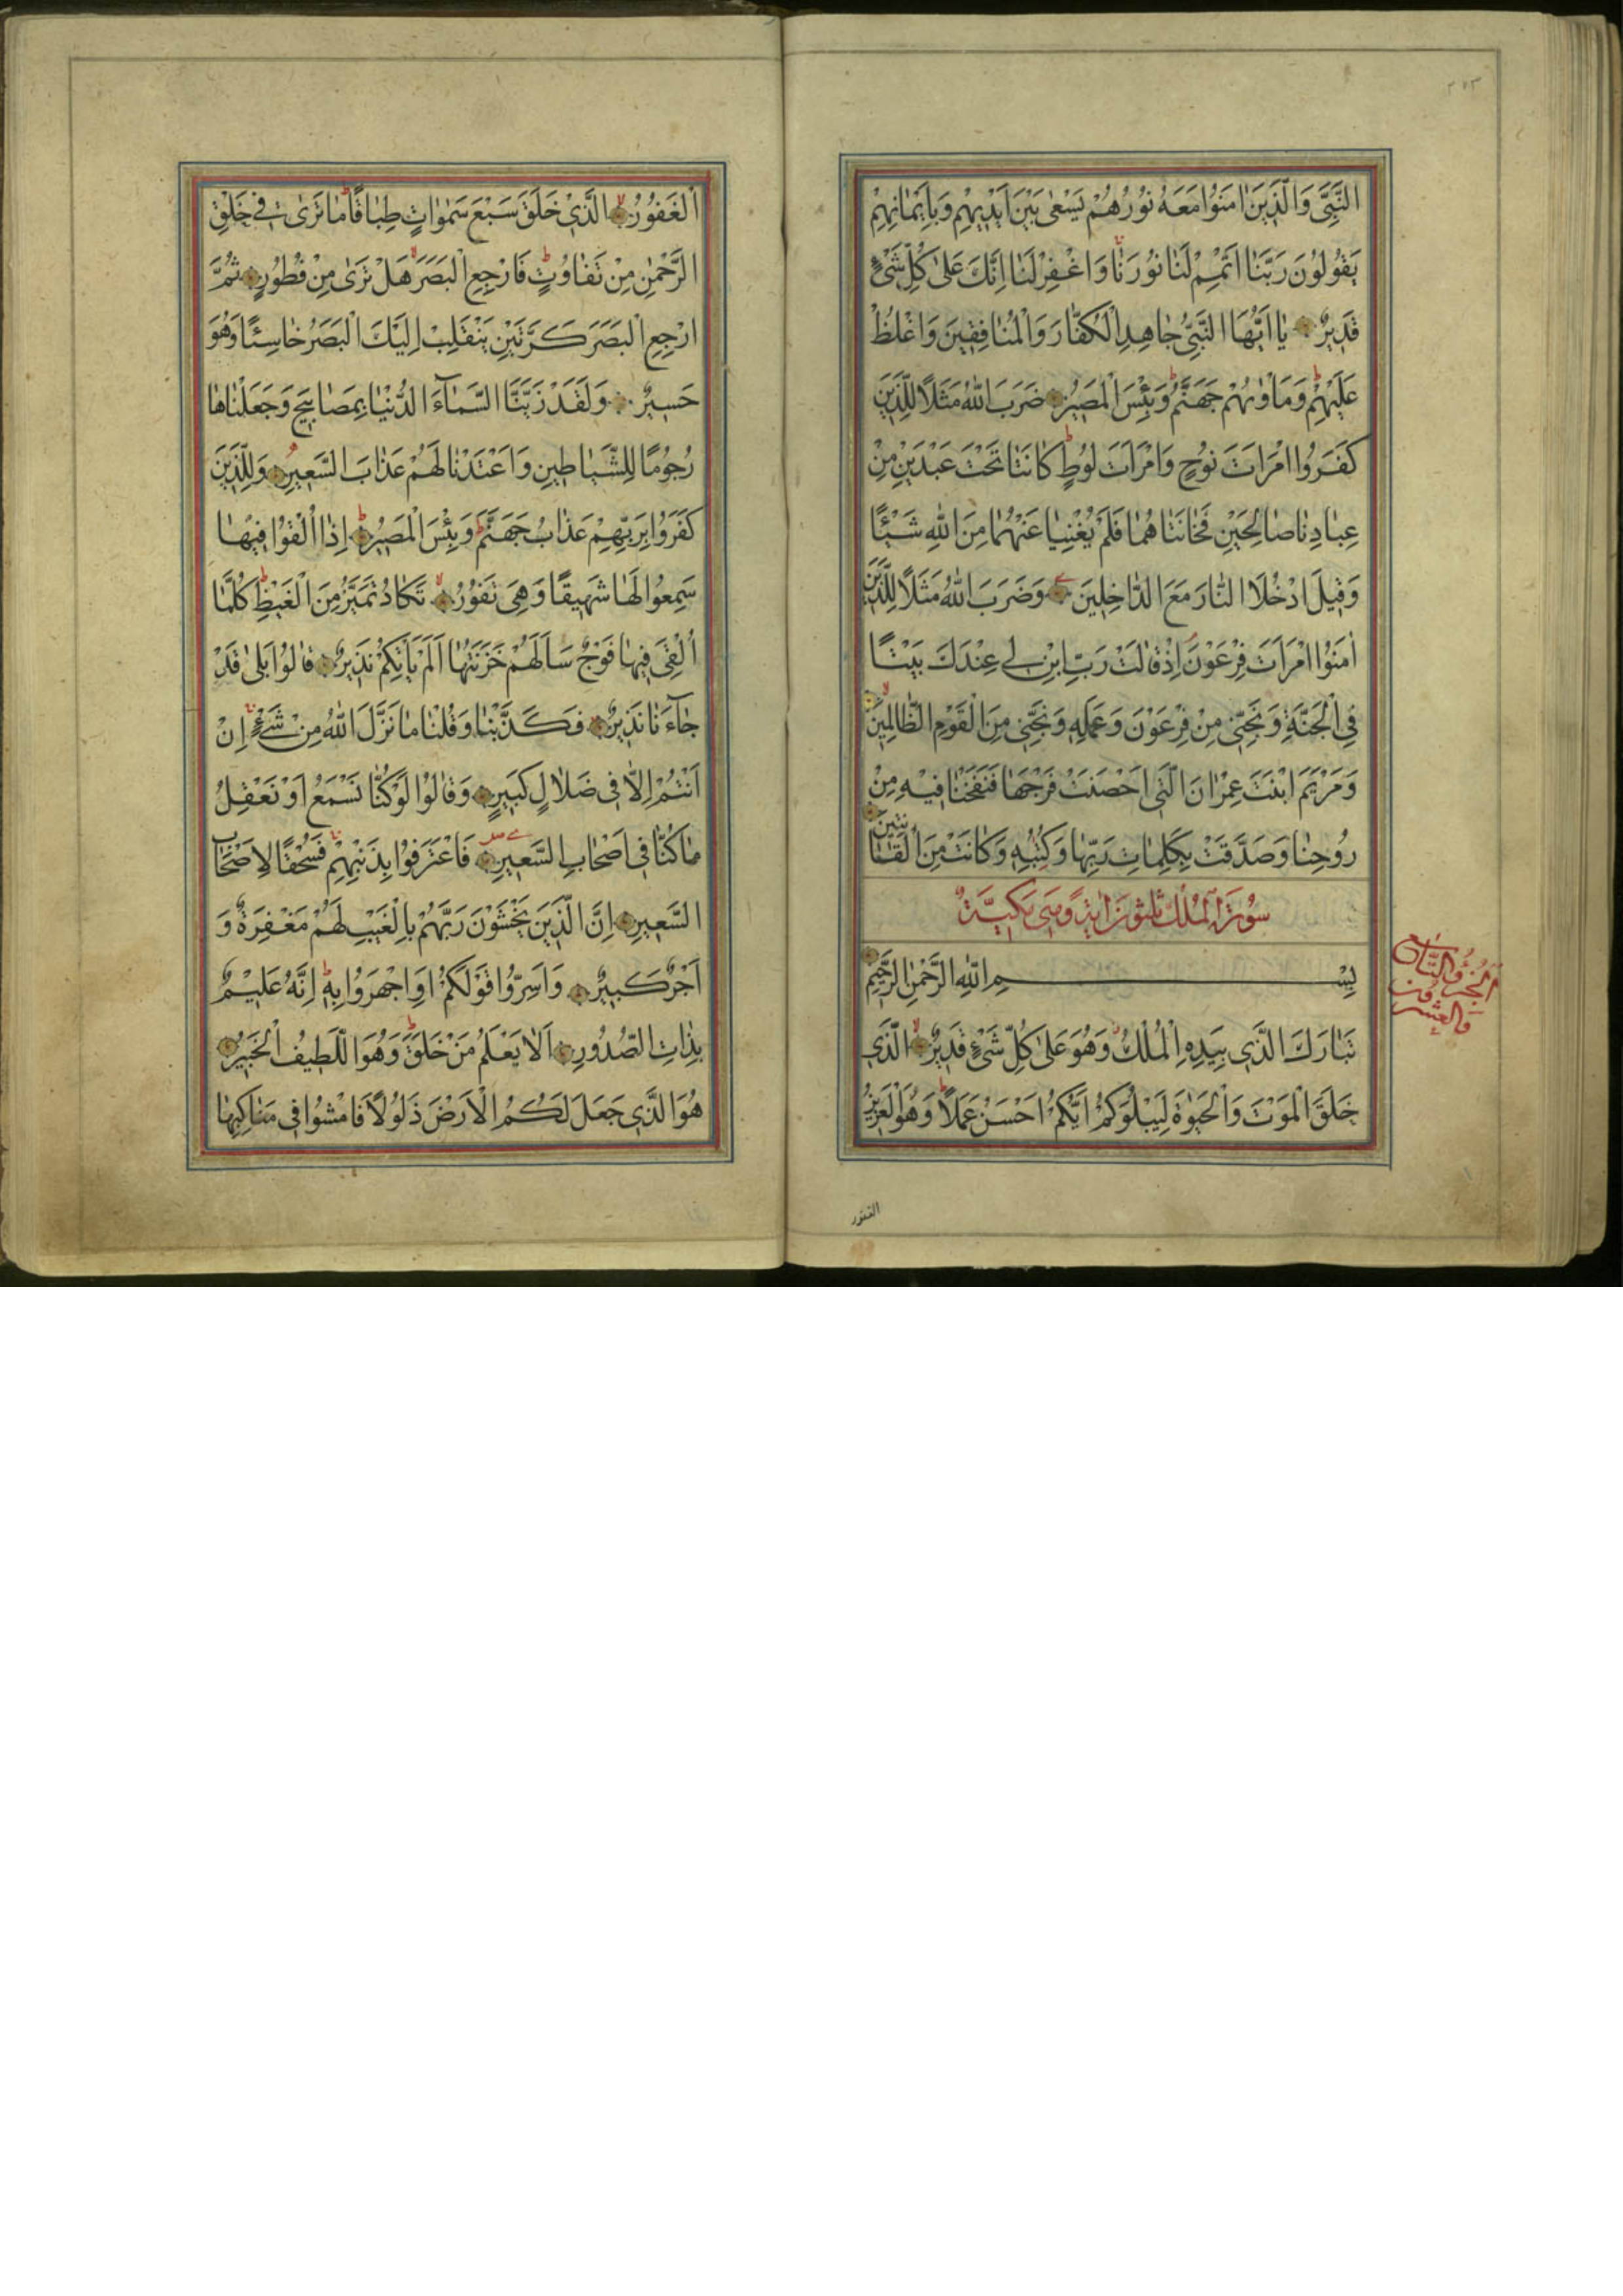 ٢٥٣
النَّبِيَّ وَالَّذِينَ اٰمَنُوا مَعَهُ نُورُهُمْ يَسْعٰى بَيْنَ اَيْدِيهِمْ وَبِاَيْمَانِهِمْ
يَقُولُونَ رَبَّنَا اَتْمِمْ لَنَا نُورَنَا وَاغْفِرْ لَنَا اِنَّكَ عَلٰى كُلِّ شَيْءٍ
قَدِيرٌ يَا اَيُّهَا النَّبِيُّ جَاهِدِ الْكُفَّارَ وَالْمُنَافِقِينَ وَاغْلُظْ
عَلَيْهِمْ وَمَأْوٰيهُمْ جَهَنَّمُ وَبِئْسَ الْمَصِيرُ ضَرَبَ اللهُ مَثَلًا لِلَّذِينَ
كَفَرُوا امْرَاَتَ نُوحٍ وَامْرَاَتَ لُوطٍ كَانَتَا تَحْتَ عَبْدَيْنِ مِنْ
عِبَادِنَا صَالِحَيْنِ فَخَانَتَاهُمَا فَلَمْ يُغْنِيَا عَنْهُمَا مِنَ اللهِ شَيْئًا
وَقِيلَ ادْخُلَا النَّارَ مَعَ الدَّاخِلِينَ وَضَرَبَ اللهُ مَثَلًا لِلَّذِينَ
اٰمَنُوا امْرَاَتَ فِرْعَوْنَ اِذْ قَالَتْ رَبِّ ابْنِ لِي عِنْدَكَ بَيْتًا
فِي الْجَنَّةِ وَنَجِّنِي مِنْ فِرْعَوْنَ وَعَمَلِهِ وَنَجِّنِي مِنَ الْقَوْمِ الظَّالِمِينَ
وَمَرْيَمَ ابْنَتَ عِمْرَانَ الَّتِي اَحْصَنَتْ فَرْجَهَا فَنَفَخْنَا فِيهِ مِنْ
رُوحِنَا وَصَدَّقَتْ بِكَلِمَاتِ رَبِّهَا وَكُتُبِهِ وَكَانَتْ مِنَ الْقَانِتِينَ
سُورَةُ الْمُلْكِ ثَلٰثُونَ اٰيَةً وَهِيَ مَكِّيَّةٌ
الْجُزْؤُ التَّاسِعُ وَالْعِشْرُونَ
بِسْمِ اللهِ الرَّحْمٰنِ الرَّحِيمِ
تَبَارَكَ الَّذِي بِيَدِهِ الْمُلْكُ وَهُوَ عَلٰى كُلِّ شَيْءٍ قَدِيرٌ الَّذِي
خَلَقَ الْمَوْتَ وَالْحَيٰوةَ لِيَبْلُوَكُمْ اَيُّكُمْ اَحْسَنُ عَمَلًا وَهُوَ الْعَزِيزُ
الغفور
الْغَفُورُ الَّذِي خَلَقَ سَبْعَ سَمٰوَاتٍ طِبَاقًا مَا تَرٰى فِي خَلْقِ
الرَّحْمٰنِ مِنْ تَفَاوُتٍ فَارْجِعِ الْبَصَرَ هَلْ تَرٰى مِنْ فُطُورٍ ثُمَّ
ارْجِعِ الْبَصَرَ كَرَّتَيْنِ يَنْقَلِبْ اِلَيْكَ الْبَصَرُ خَاسِئًا وَهُوَ
حَسِيرٌ وَلَقَدْ زَيَّنَّا السَّمَاءَ الدُّنْيَا بِمَصَابِيحَ وَجَعَلْنَاهَا
رُجُومًا لِلشَّيَاطِينِ وَاَعْتَدْنَا لَهُمْ عَذَابَ السَّعِيرِ وَلِلَّذِينَ
كَفَرُوا بِرَبِّهِمْ عَذَابُ جَهَنَّمَ وَبِئْسَ الْمَصِيرُ اِذَا اُلْقُوا فِيهَا
سَمِعُوا لَهَا شَهِيقًا وَهِيَ تَفُورُ تَكَادُ تَمَيَّزُ مِنَ الْغَيْظِ كُلَّمَا
اُلْقِيَ فِيهَا فَوْجٌ سَاَلَهُمْ خَزَنَتُهَا اَلَمْ يَأْتِكُمْ نَذِيرٌ قَالُوا بَلٰى قَدْ
جَاءَنَا نَذِيرٌ فَكَذَّبْنَا وَقُلْنَا مَا نَزَّلَ اللهُ مِنْ شَيْءٍ اِنْ
اَنْتُمْ اِلَّا فِي ضَلَالٍ كَبِيرٍ وَقَالُوا لَوْ كُنَّا نَسْمَعُ اَوْ نَعْقِلُ
مَا كُنَّا فِي اَصْحَابِ السَّعِيرِ فَاعْتَرَفُوا بِذَنْبِهِمْ فَسُحْقًا لِاَصْحَابِ
السَّعِيرِ اِنَّ الَّذِينَ يَخْشَوْنَ رَبَّهُمْ بِالْغَيْبِ لَهُمْ مَغْفِرَةٌ وَ
اَجْرٌ كَبِيرٌ وَاَسِرُّوا قَوْلَكُمْ اَوِ اجْهَرُوا بِهِ اِنَّهُ عَلِيمٌ
بِذَاتِ الصُّدُورِ اَلَا يَعْلَمُ مَنْ خَلَقَ وَهُوَ اللَّطِيفُ الْخَبِيرُ
هُوَ الَّذِي جَعَلَ لَكُمُ الْاَرْضَ ذَلُولًا فَامْشُوا فِي مَنَاكِبِهَا